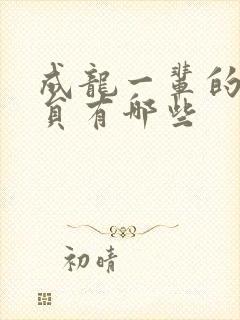 成龍一輩的
員有哪些
初晴